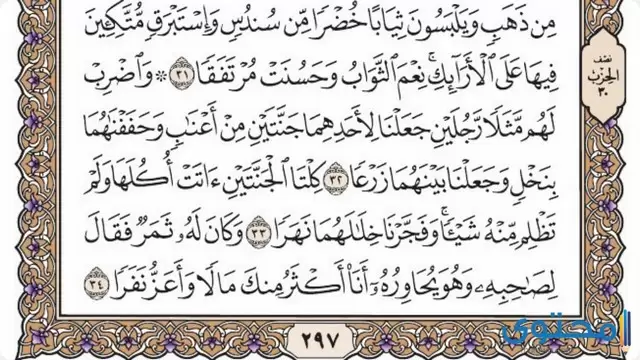 مِن ذَهَبٍ وَيَلْبَسُونَ ثِيَابًا خُضْرًا مِّن سُندُسٍ وَإِسْتَبْرَقٍ مُّتَّكِـِٔينَ
فِيهَا عَلَى ٱلْأَرَآئِكِۚ نِعْمَ ٱلثَّوَابُ وَحَسُنَتْ مُرْتَفَقًا ٣١ ۞ وَٱضْرِبْ
لَهُم مَّثَلًا رَّجُلَيْنِ جَعَلْنَا لِأَحَدِهِمَا جَنَّتَيْنِ مِنْ أَعْنَٰبٍ وَحَفَفْنَٰهُمَا
بِنَخْلٍ وَجَعَلْنَا بَيْنَهُمَا زَرْعًا ٣٢ كِلْتَا ٱلْجَنَّتَيْنِ ءَاتَتْ أُكُلَهَا وَلَمْ
تَظْلِم مِّنْهُ شَيْـًٔاۚ وَفَجَّرْنَا خِلَٰلَهُمَا نَهَرًا ٣٣ وَكَانَ لَهُۥ ثَمَرٌ فَقَالَ
لِصَٰحِبِهِۦ وَهُوَ يُحَاوِرُهُۥٓ أَنَا۠ أَكْثَرُ مِنكَ مَالًا وَأَعَزُّ نَفَرًا ٣٤
نصف
الحزب
٣٠
٢٩٧
المحتوى